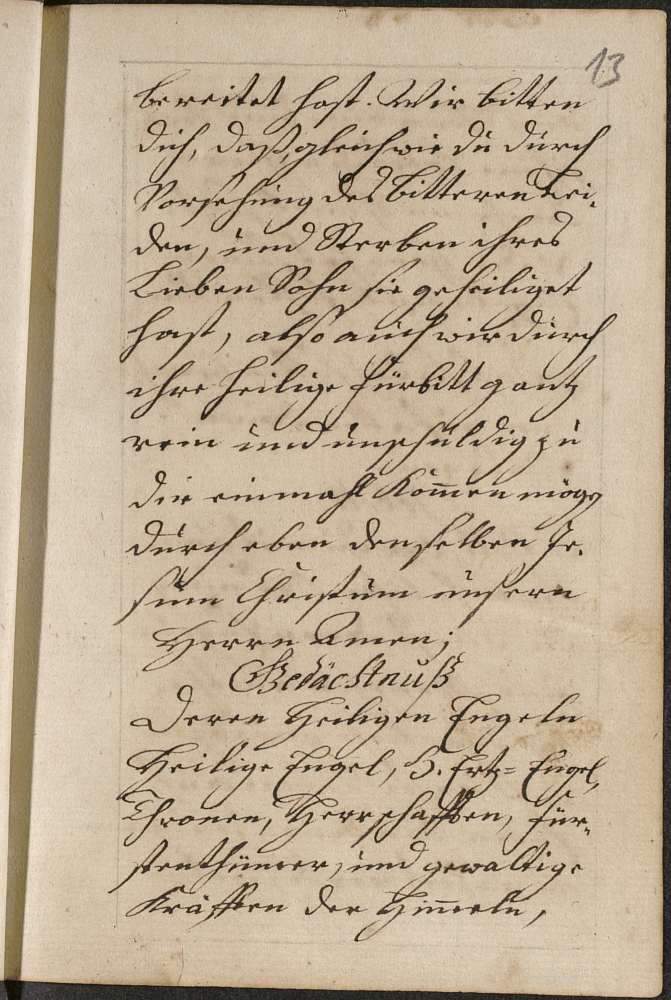 13
bereitet hast. Wir bitten
dich, daß, gleichwie du durch
Vorsehung des bitteren Lei-
den, und Sterben ihres
Lieben Sohn sie geheiliget
hast, also auch wir durch
ihre heilige Fürbitt gantz
rein und unschuldig zu
dir einmahl kom̄en möge
durch eben denselben Je-
sum Christum unsern
Herrn Amen;
Gedächtnuß
Deren Heiligen Engeln
Heilige Engel, H. Ertz= Engel,
Thronen, Herrschafften, Für-
stenthümer, und gewaltige
Kräfften der Him̄eln,